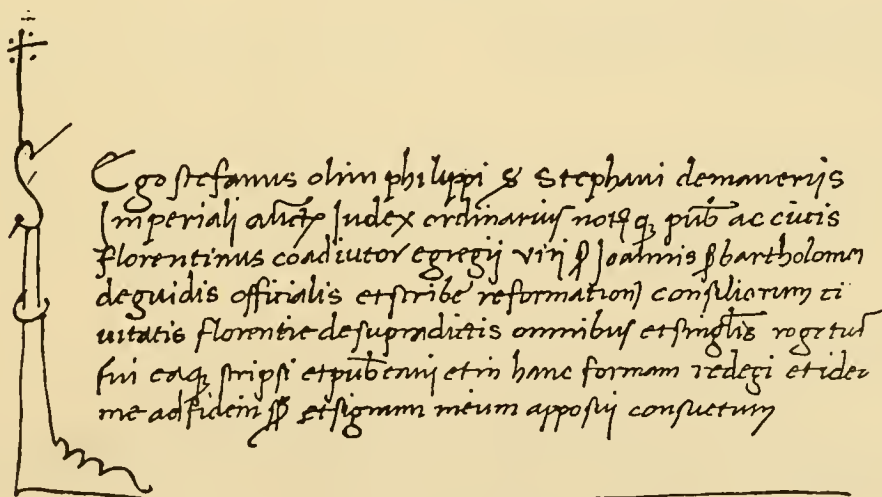 Ego stefanus olim philippi S stephani demanerijs
Imperiali auctē Judex ordinarius notq̄ꝫ pub̄ ac ciuis
florentinus coadiutor egregij viri Joannis bartholomei
deguidis officialis etscribe reformation consiliorum ci
uitatis florentie desupradictis omnibus etsinglis̄ rogatus
fui eaqꝫ scripsi etpub̄caui etin hanc formam redegi etideo
me adfidem etsignum meum apposui consuetum